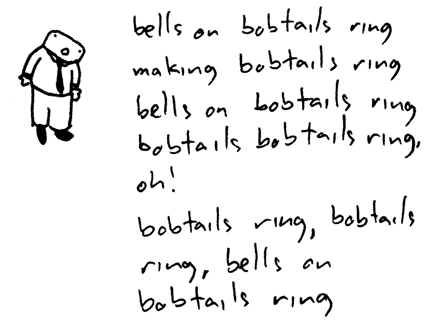 bells on bobtails ring
making bobtails ring
bells on bobtails ring
bobtails bobtails ring,
oh!
bobtails ring, bobtails
ring, bells on
bobtails ring